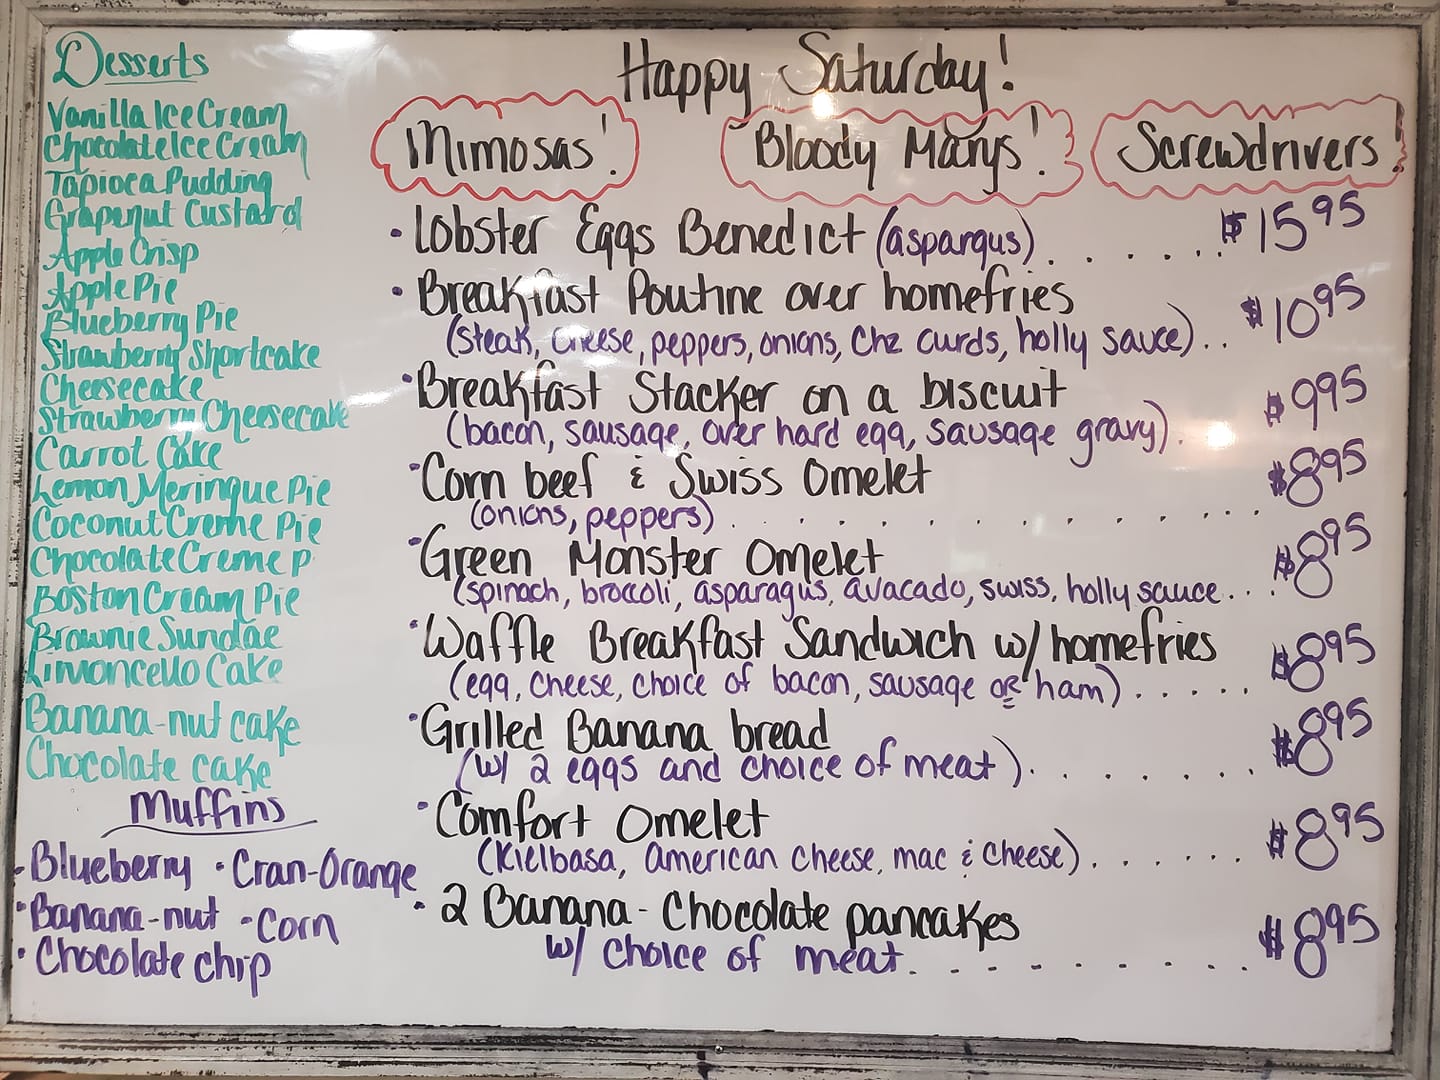 Desserts
Vanilla Ice Cream
Chocolate Ice Cream
Tapioca Pudding
Grapenut Custard
Apple Crisp
Apple Pie
Blueberry Pie
Strawberry Shortcake
Cheesecake
Strawberry Cheesecake
Carrot Cake
Lemon Meringue Pie
Coconut Creme Pie
Chocolate Creme P
Boston Cream Pie
Brownie Sundae
Limoncello Cake
Banana-nut cake
Chocolate cake
Muffins
• Blueberry • Cran-Orange
• Banana-nut • Corn
• Chocolate chip
Happy Saturday!
Mimosas! Bloody Marys! Screwdrivers!
• Lobster Eggs Benedict (aspargus) . . . . . . $15.95
• Breakfast Poutine over homefries
(steak, cheese, peppers, onions, chz curds, holly sauce) . . $10.95
• Breakfast Stacker on a biscuit
(bacon, sausage, over hard egg, sausage gravy) . $9.95
• Corn beef & Swiss Omelet
(onions, peppers) . . . . . . . . . . . . . $8.95
• Green Monster Omelet
(spinach, broccoli, asparagus, avacado, swiss, holly sauce . . . . $8.95
• Waffle Breakfast Sandwich w/ homefries
(egg, cheese, choice of bacon, sausage or ham) . . . . . . $8.95
• Grilled Banana bread
(w/ 2 eggs and choice of meat) . . . . . . . $8.95
• Comfort Omelet
(Kielbasa, american cheese, mac & cheese) . . . . . . . $8.95
• 2 Banana-Chocolate pancakes
w/ choice of meat . . . . . . . . . . $8.95